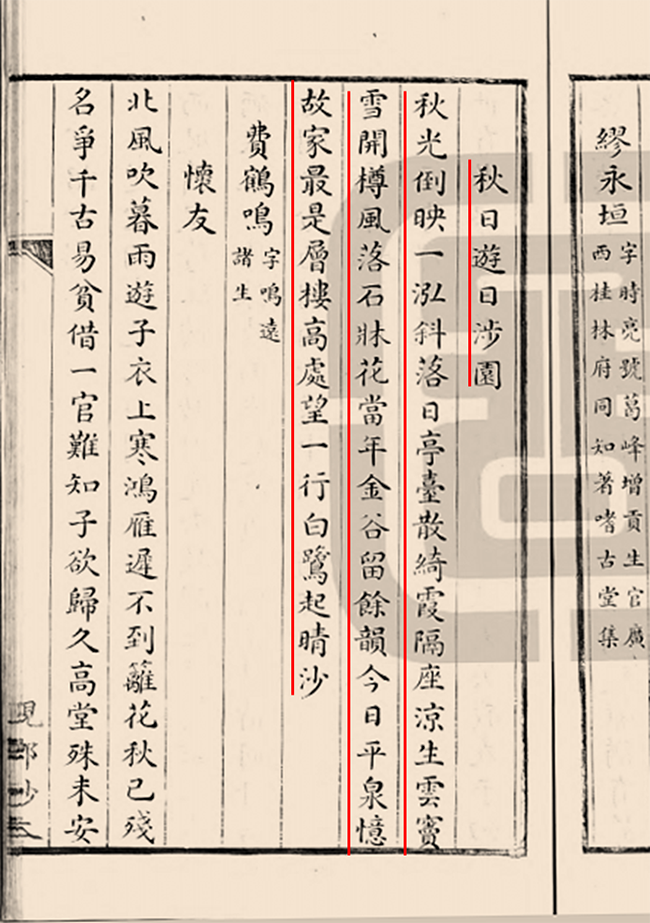 繆永垣
字時亮號蒍峰增貢生官廣
西桂林府同知著嗜古堂集
秋日遊日涉園
秋光倒映一泓斜落日亭臺散綺霞隔座涼生雲竇
雪開樽風落石牀花當年金谷留餘韻今日平泉憶
故家最是層樓高處望一行白鷺起晴沙
費鶴鳴
字鳴遠
諸生
懷友
北風吹暮雨遊子衣上寒鴻雁遲不到籬花秋已殘
名爭千古易貧借一官難知子欲歸久高堂殊未安